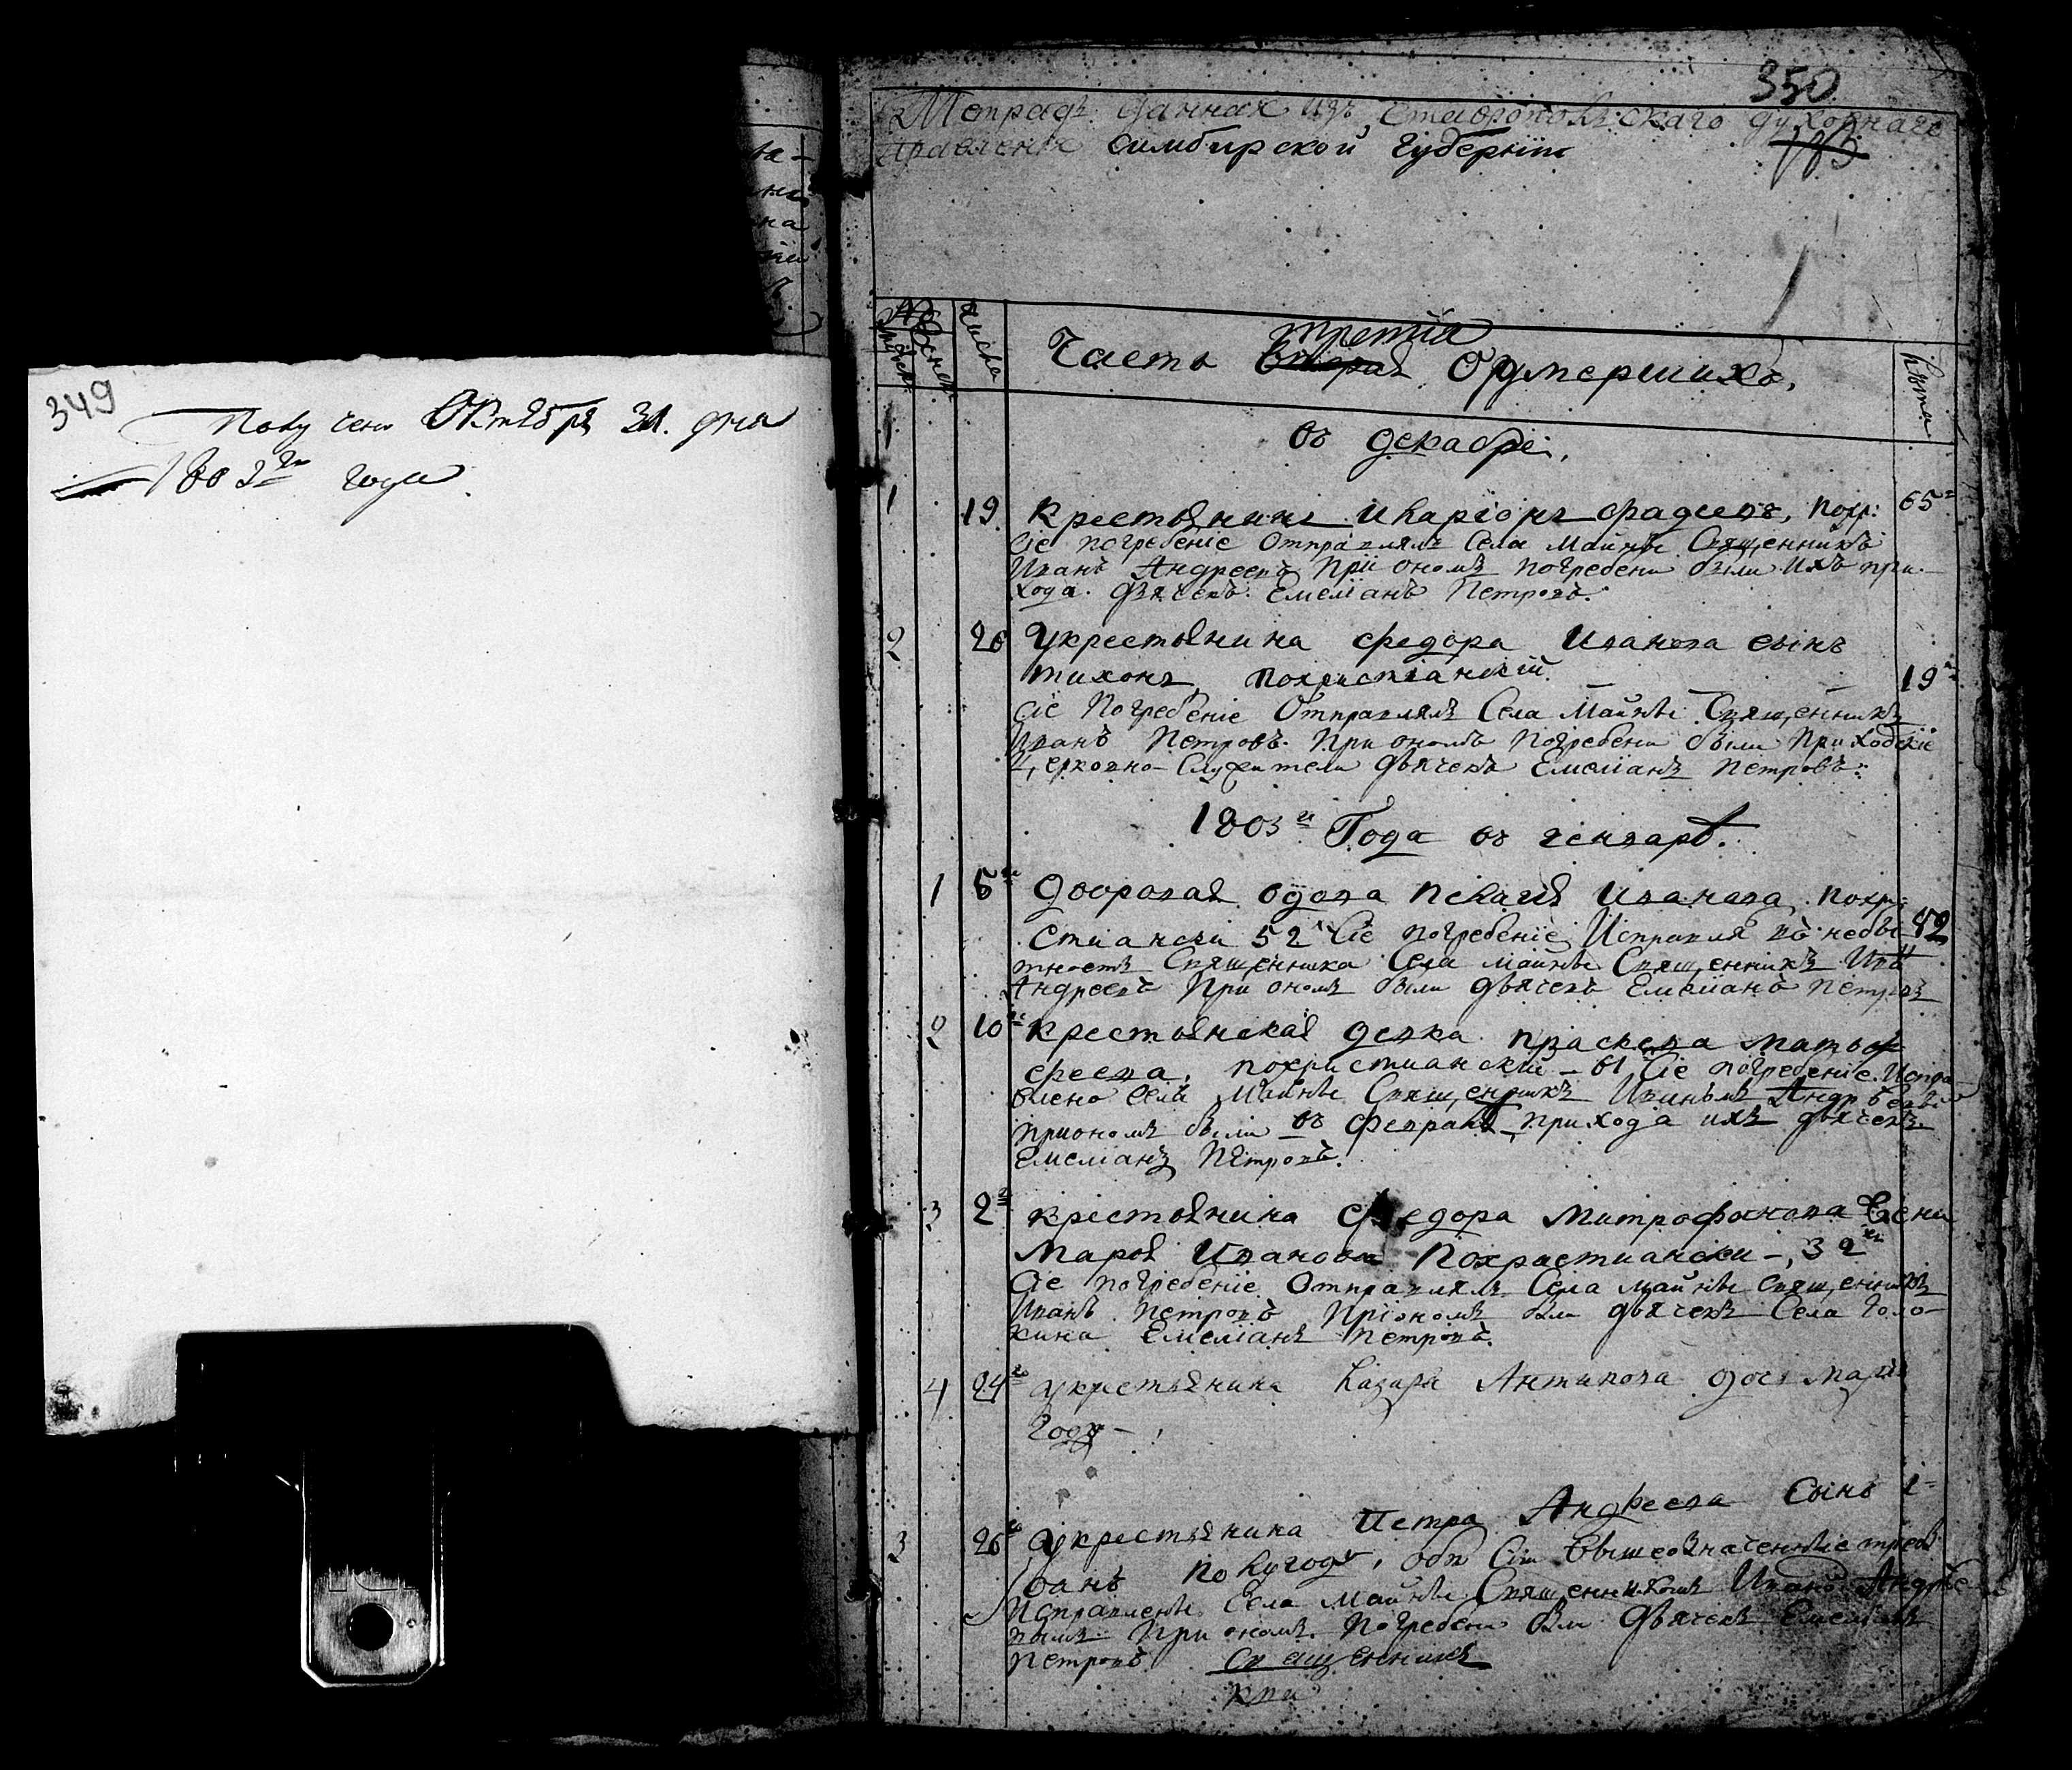 349
Получено Октября 31. дня
1803го года
350
Тетрадь данная изъ Ставропольскаго духовнаго
правленія симбирской губерніи
число
Лѣта
третїя
Часть вторая Оумершихъ,
въ декабрѣ,
1 19 крестьянинъ иларіонъ фадеевъ, похр: 65
Сіе погребеніе Отправлялъ Села Майны Священникъ
Иванъ Андреевъ При ономъ погребени были ихъ при-
хода. дьячекъ. Емеліанъ Петровъ.
2 26 Укрестьянина федора Иванова сынъ
тихонъ похристіанскїй. 19
Сіе Погребеніе Отправлялъ Села Майны Священникъ
Иванъ Петровъ. При ономъ Погребени были Приходскіе
Церковно-Служители дьячекъ Емеліанъ Петровъ.
1803го Года въ генваре.
1 5 дворовая вдова пелагия Иванова похри
стиански 52 Сіе погребеніе Исправля въ небы 52
тность Священника Села Майны Священникъ Ива
Андреевъ При ономъ были дьячекъ Емелианъ петровъ
2 10 крестьянская девка праскева матвѣ
феева, похристианский - 61 Сіе погребеніе. Испра
влено Села Майны Священникъ Иваномъ Андрѣевы
приономъ были въ феврале прихода ихъ дьячекъ
Емеліанъ Петровъ.
3 2 крестьянина федора Митрофанова жена
Марья Иванова Похристиански - 32
Сіе погребеніе Отправлялъ Села майны священникъ
Иванъ Петровъ Пріономъ был дьячекъ Села Голо-
кина Емеліанъ Петровъ.
4 24 укрестьянина Лазаря Антипова дочь марья
году -
3 26 укрестьянина Петра Андреева Сынъ 1
Иванъ полугоду, обѣ Сіи вышеозначенные треб
Исправлены Села Майны Священникомъ Иваномъ Андрѣе
вымъ При ономъ. Погребени был Дьячекъ Емеліанъ
Петровъ. Священникъ